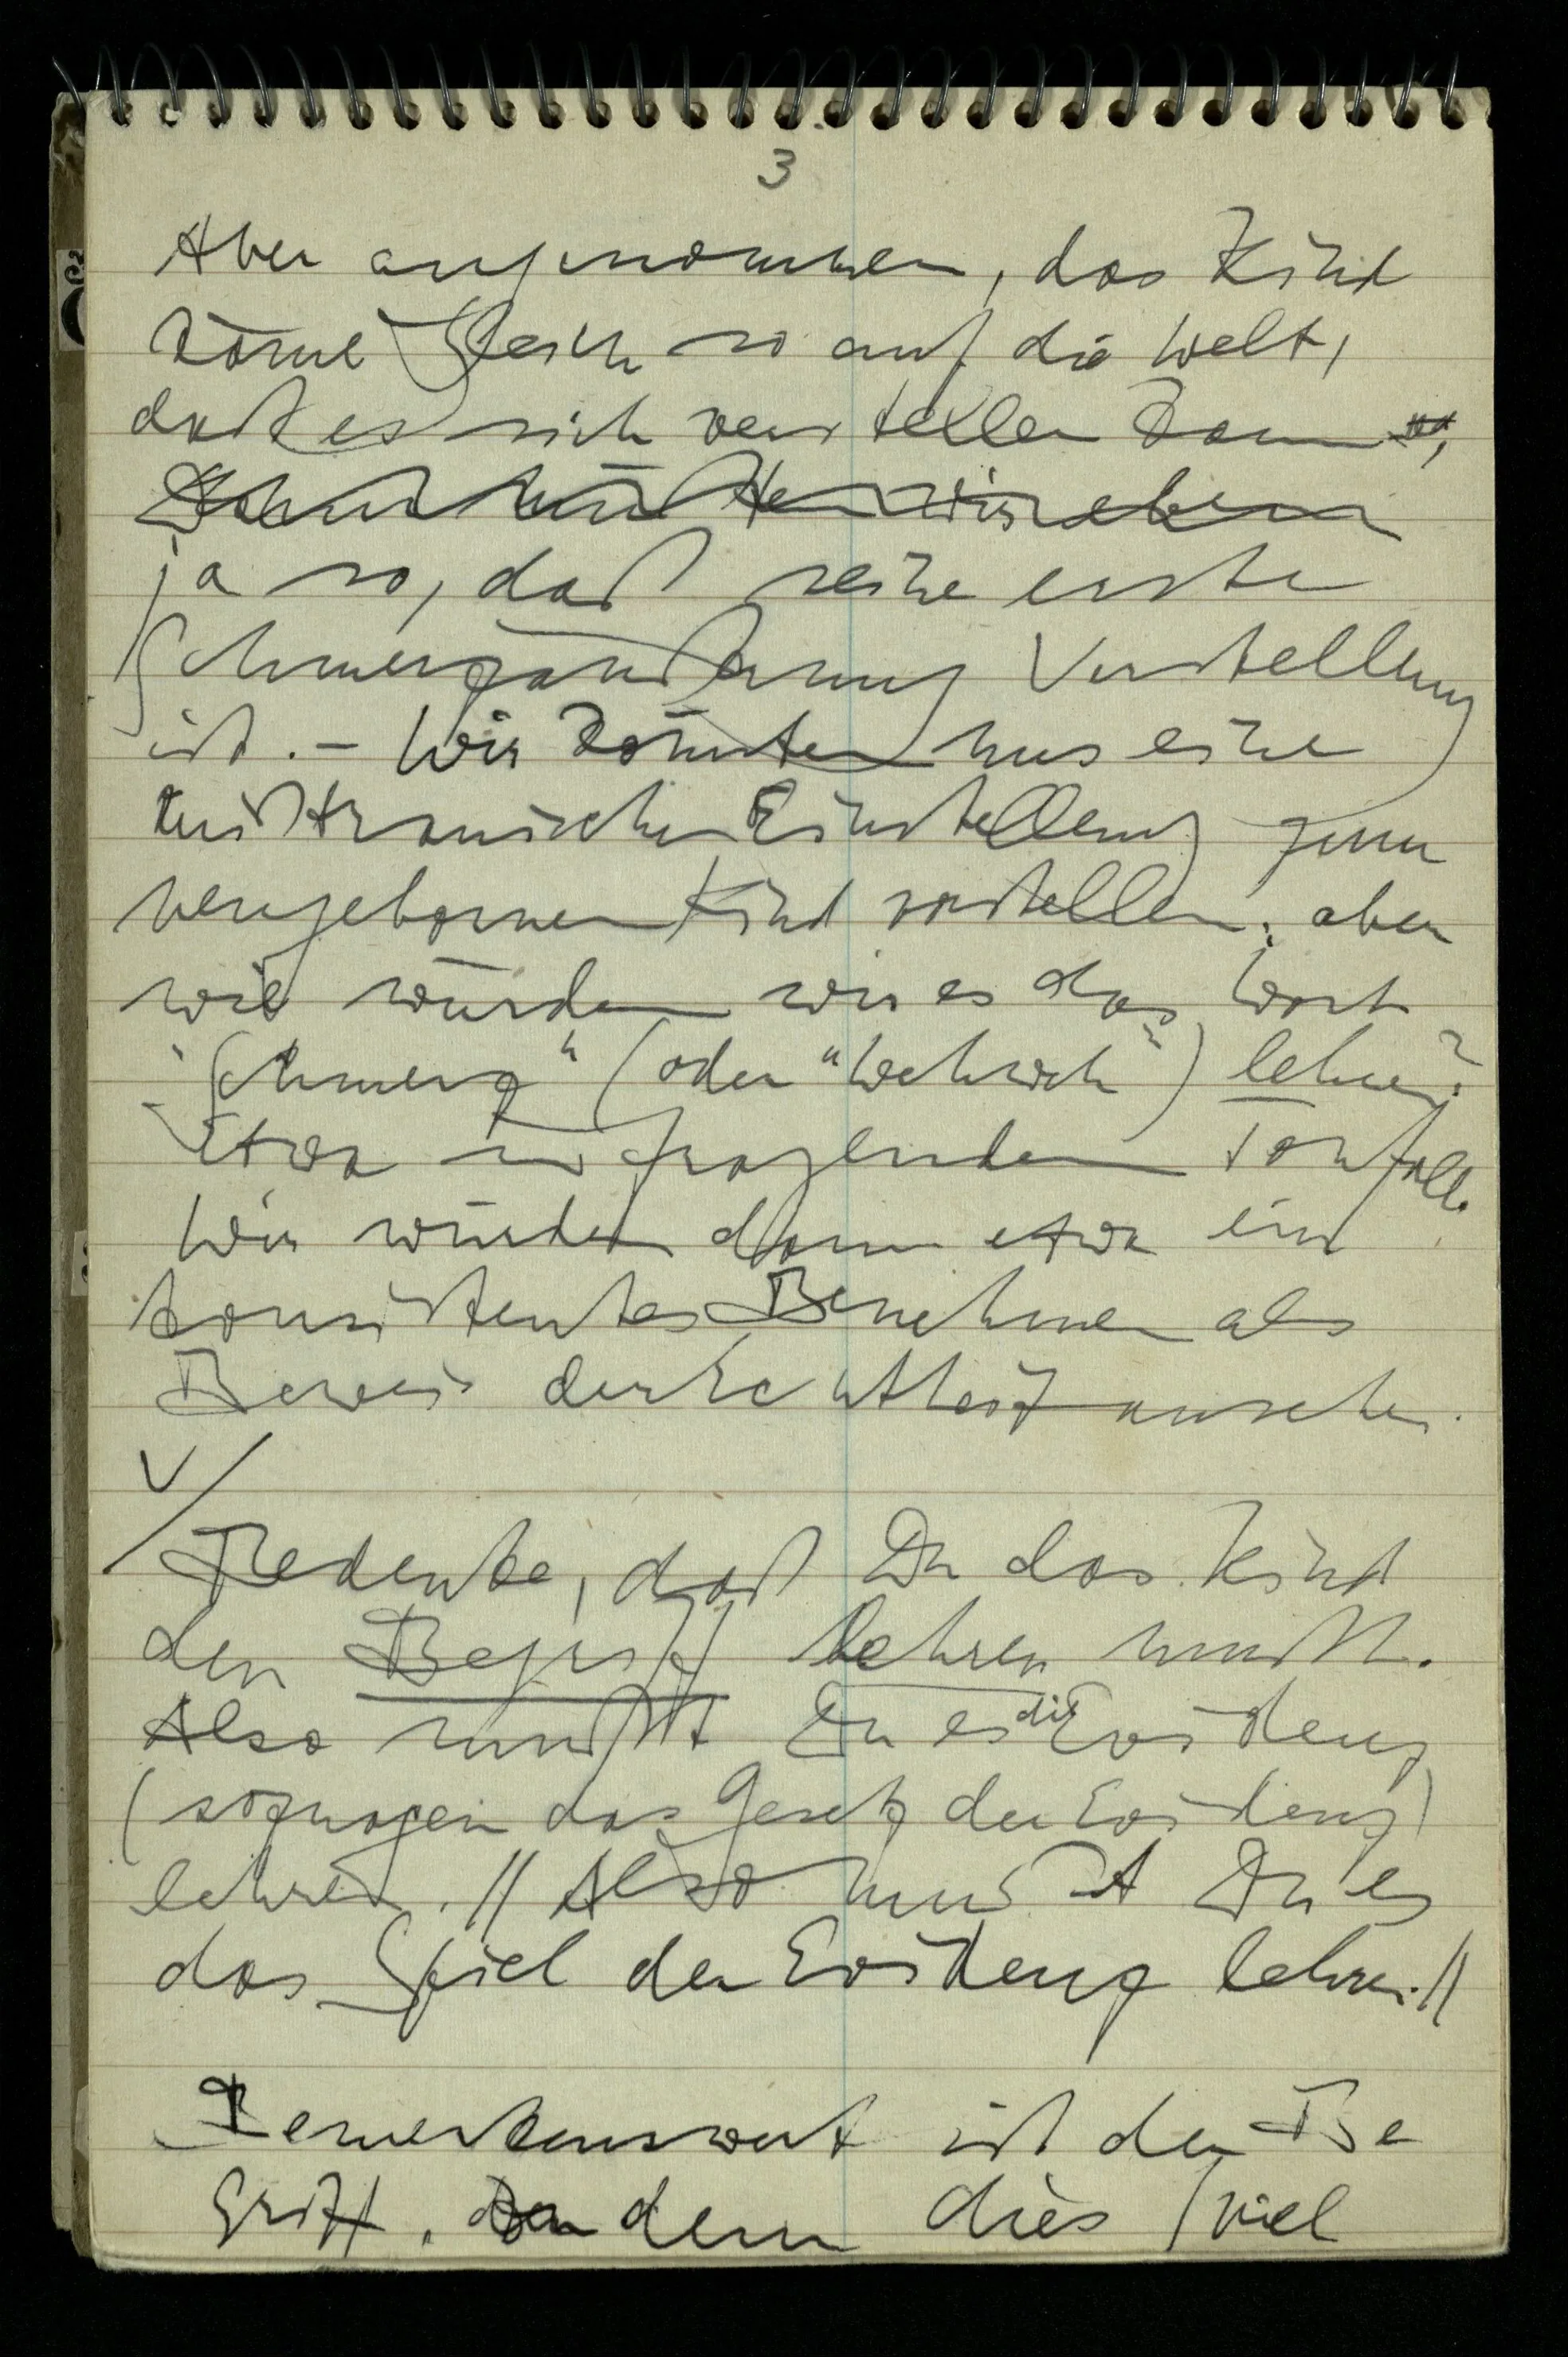 3
Aber angenommen, das Kind
käme gleich so auf die Welt,
daß es sich verstellen kann,
ja so, daß seine erste
Schmerzäußerung Verstellung
ist. – Wir könnten uns eine
mißtrauische Einstellung zum
neugebornen Kind vorstellen; aber
wie würden wir es das Wort
"Schmerz" (oder "Wehweh") lehren?
Etwa in fragendem Tonfall.
Wir würden dann etwa ein
konsistentes Benehmen als
Beweis der Echtheit ansehen.
V/
Bedenke, daß Du das Kind
den Begriff lehren mußt.
Also mußt Du es die Evidenz
(sozusagen das Gesetz der Evidenz)
lehren. // Also mußt Du es
das Spiel der Evidenz lehren. //
Bemerkenswert ist der Be
griff, dem dies Spiel